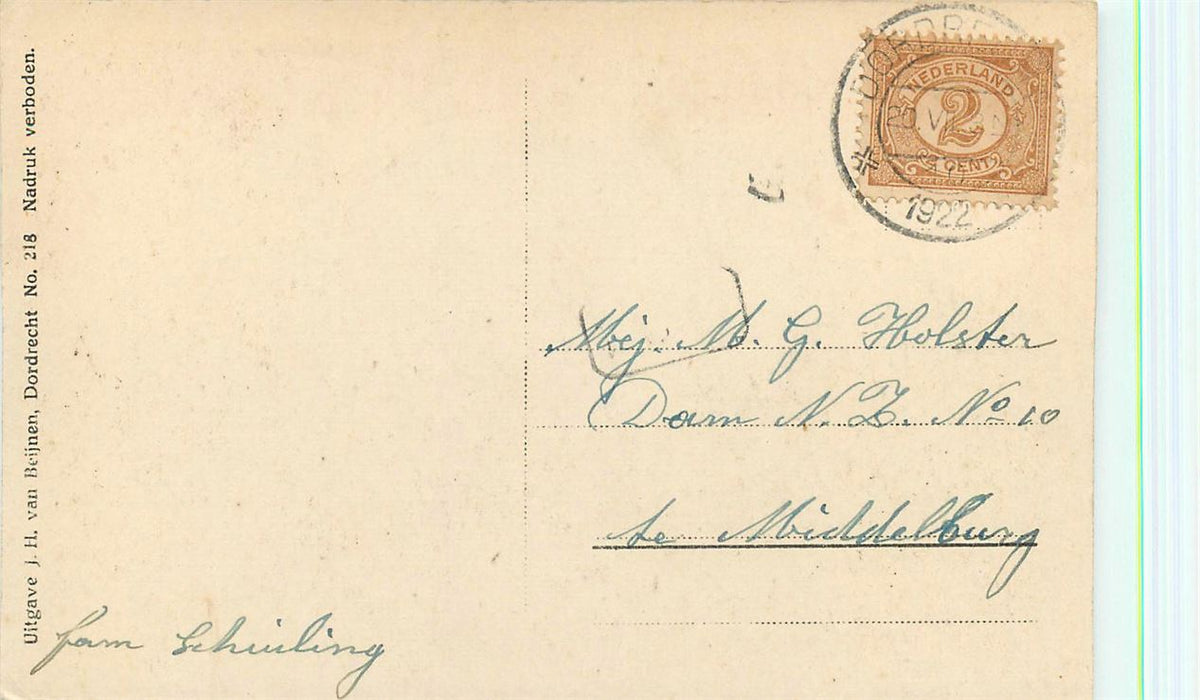 Uitgave J. H. van Beijnen, Dordrecht No. 218 Nadruk verboden.
NEDERLAND
2
CENT
1922
Mej. M. G. Holster
Dam N. Z. No 10
te Middelburg
fam Schuiling